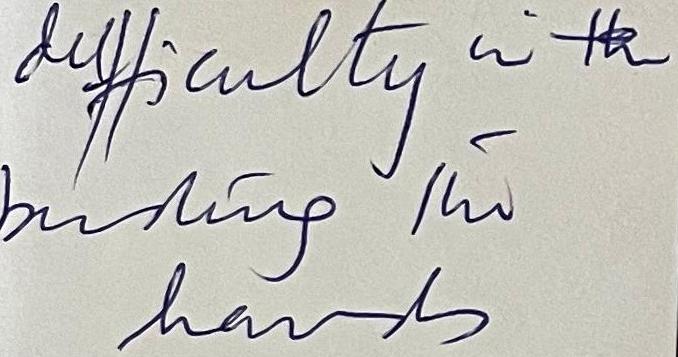 difficulty in the
bending the
hands